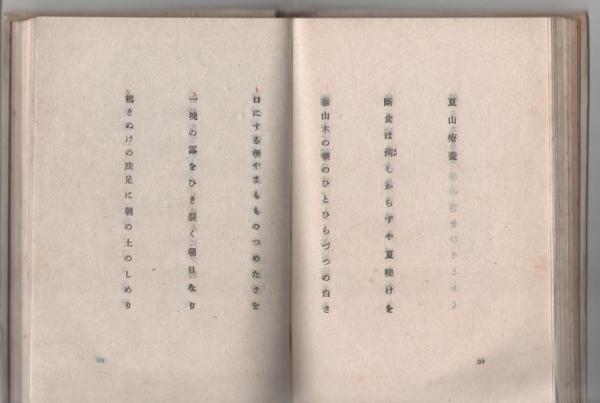 夏山療養
断食は清しからずや夏暁けを
泰山木の朝のひとひらづつの白さ
口にする朝やまもものつめたさを
一塊の露をひき裂く朝日なり
鶏をぬけの跣足に朝の土のしめり